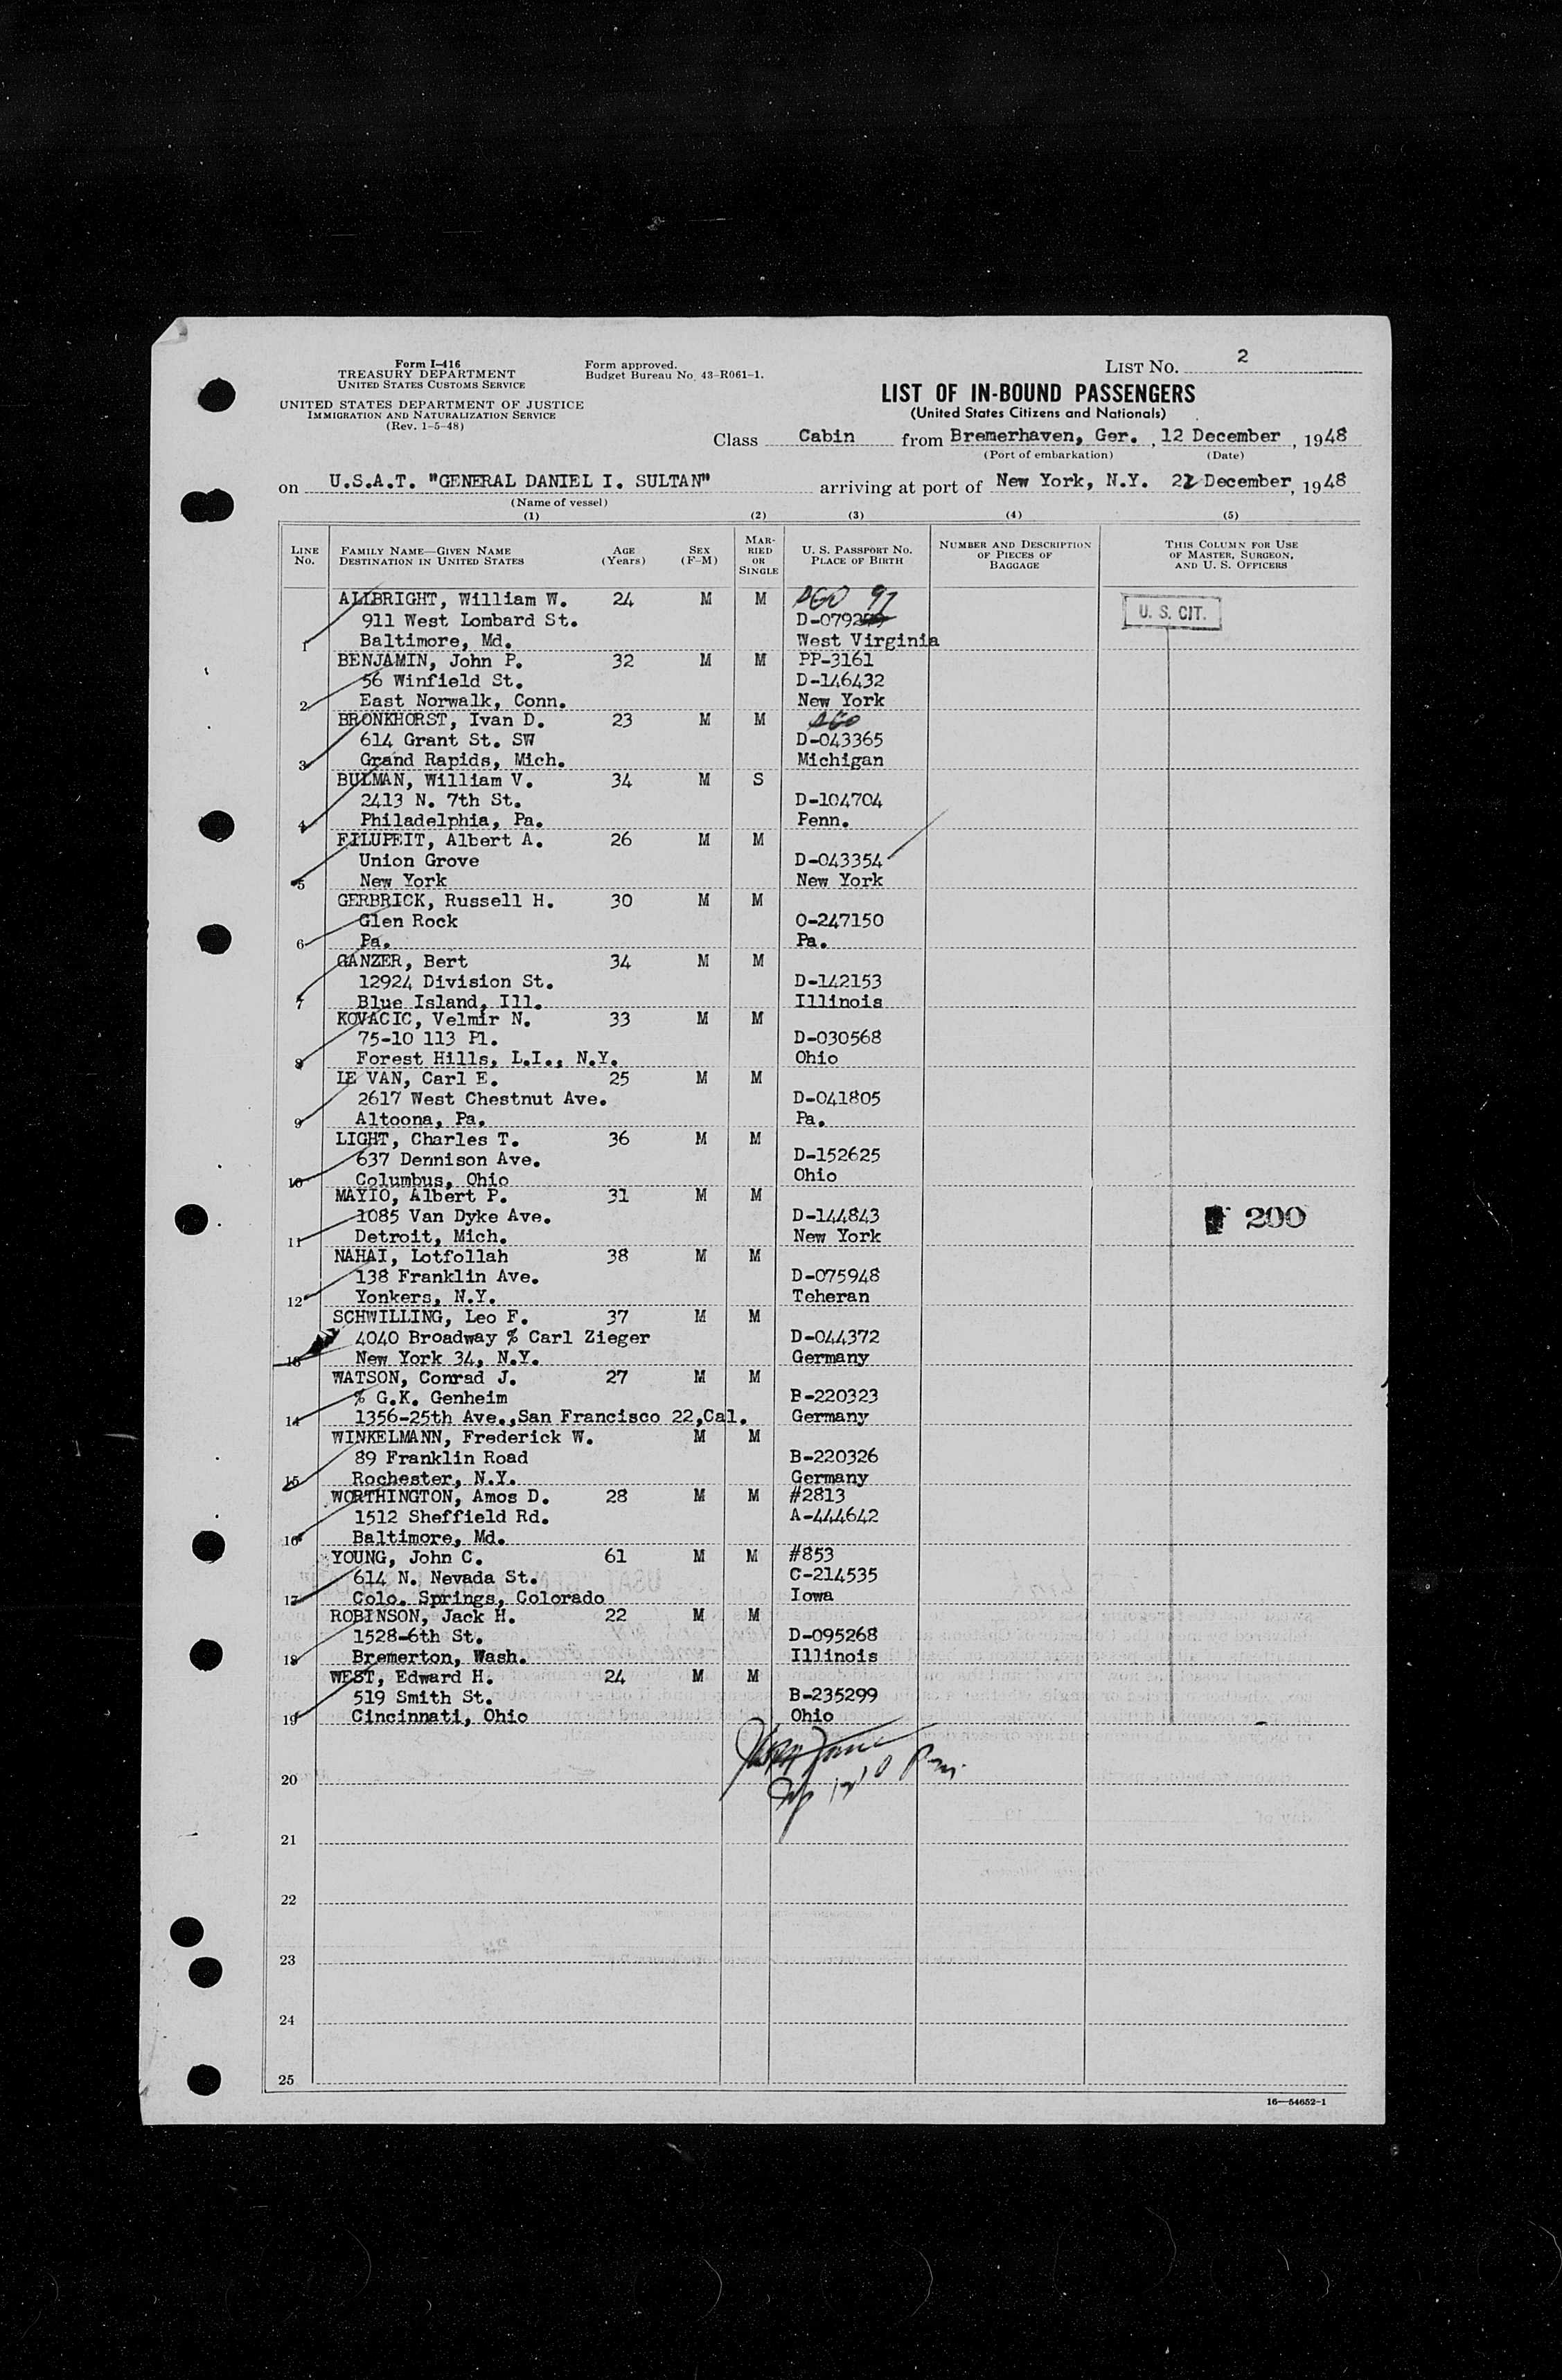 Form I-416
TREASURY DEPARTMENT
UNITED STATES CUSTOMS SERVICE
UNITED STATES DEPARTMENT OF JUSTICE
IMMIGRATION AND NATURALIZATION SERVICE
(Rev. 1-5-48)
Form approved.
Budget Bureau No. 43-R061-1.
LIST NO. 2
LIST OF IN-BOUND PASSENGERS
(United States Citizens and Nationals)
Class Cabin from Bremerhaven, Ger., 12 December, 1948
(Port of embarkation) (Date)
on U.S.A.T. "GENERAL DANIEL I. SULTAN" arriving at port of New York, N.Y. 22 December, 1948
(Name of vessel)
(1) (2) (3) (4) (5)
LINE NO.
FAMILY NAME—GIVEN NAME
DESTINATION IN UNITED STATES
AGE (Years)
SEX (F-M)
MARRIED OR SINGLE
U. S. PASSPORT NO.
PLACE OF BIRTH
NUMBER AND DESCRIPTION OF PIECES OF BAGGAGE
THIS COLUMN FOR USE OF MASTER, SURGEON, AND U. S. OFFICERS
ALLBRIGHT, William W. 24 M M AGO 97
911 West Lombard St. D-0792
1 Baltimore, Md. West Virginia
U. S. CIT.
BENJAMIN, John P. 32 M M PP-3161
56 Winfield St. D-146432
2 East Norwalk, Conn. New York
BRONKHORST, Ivan D. 23 M M AGO
614 Grant St. SW D-043365
3 Grand Rapids, Mich. Michigan
BULMAN, William V. 34 M S
2413 N. 7th St. D-104704
4 Philadelphia, Pa. Penn.
FILUPEIT, Albert A. 26 M M
Union Grove D-043354
5 New York New York
GERBRICK, Russell H. 30 M M
Glen Rock O-247150
6 Pa. Pa.
GANZER, Bert 34 M M
12924 Division St. D-142153
7 Blue Island, Ill. Illinois
KOVACIC, Velmir N. 33 M M
75-10 113 Pl. D-030568
8 Forest Hills, L.I., N.Y. Ohio
LE VAN, Carl E. 25 M M
2617 West Chestnut Ave. D-041805
9 Altoona, Pa. Pa.
LIGHT, Charles T. 36 M M
637 Dennison Ave. D-152625
10 Columbus, Ohio Ohio
MAYIO, Albert P. 31 M M
1085 Van Dyke Ave. D-144843 200
11 Detroit, Mich. New York
NAHAI, Lotfollah 38 M M
138 Franklin Ave. D-075948
12 Yonkers, N.Y. Teheran
SCHWILLING, Leo F. 37 M M
4040 Broadway % Carl Zieger D-044372
13 New York 34, N.Y. Germany
WATSON, Conrad J. 27 M M
% G.K. Genheim B-220323
14 1356-25th Ave.,San Francisco 22,Cal. Germany
WINKELMANN, Frederick W. M M
89 Franklin Road B-220326
15 Rochester, N.Y. Germany
WORTHINGTON, Amos D. 28 M M #2813
1512 Sheffield Rd. A-444642
16 Baltimore, Md.
YOUNG, John C. 61 M M #853
614 N. Nevada St. C-214535
17 Colo. Springs, Colorado Iowa
ROBINSON, Jack H. 22 M M
1528-6th St. D-095268
18 Bremerton, Wash. Illinois
WEST, Edward H. 24 M M
519 Smith St. B-235299
19 Cincinnati, Ohio Ohio
20
21
22
23
24
25
16—54652-1